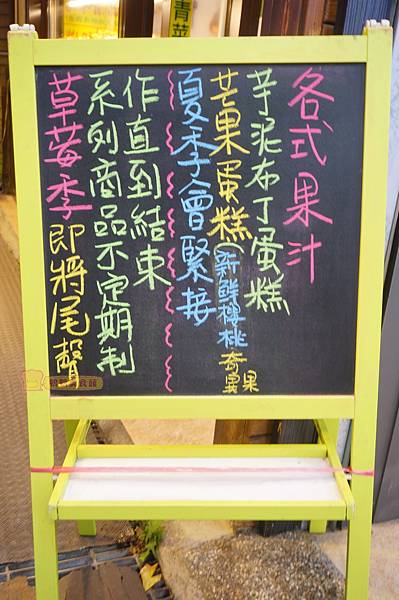 各式果汁
芋泥布丁蛋糕
芒果蛋糕(新鮮櫻桃奇異果
夏季會緊接
作直到結束
系列商品不定期制
草莓季即將尾聲
青菜